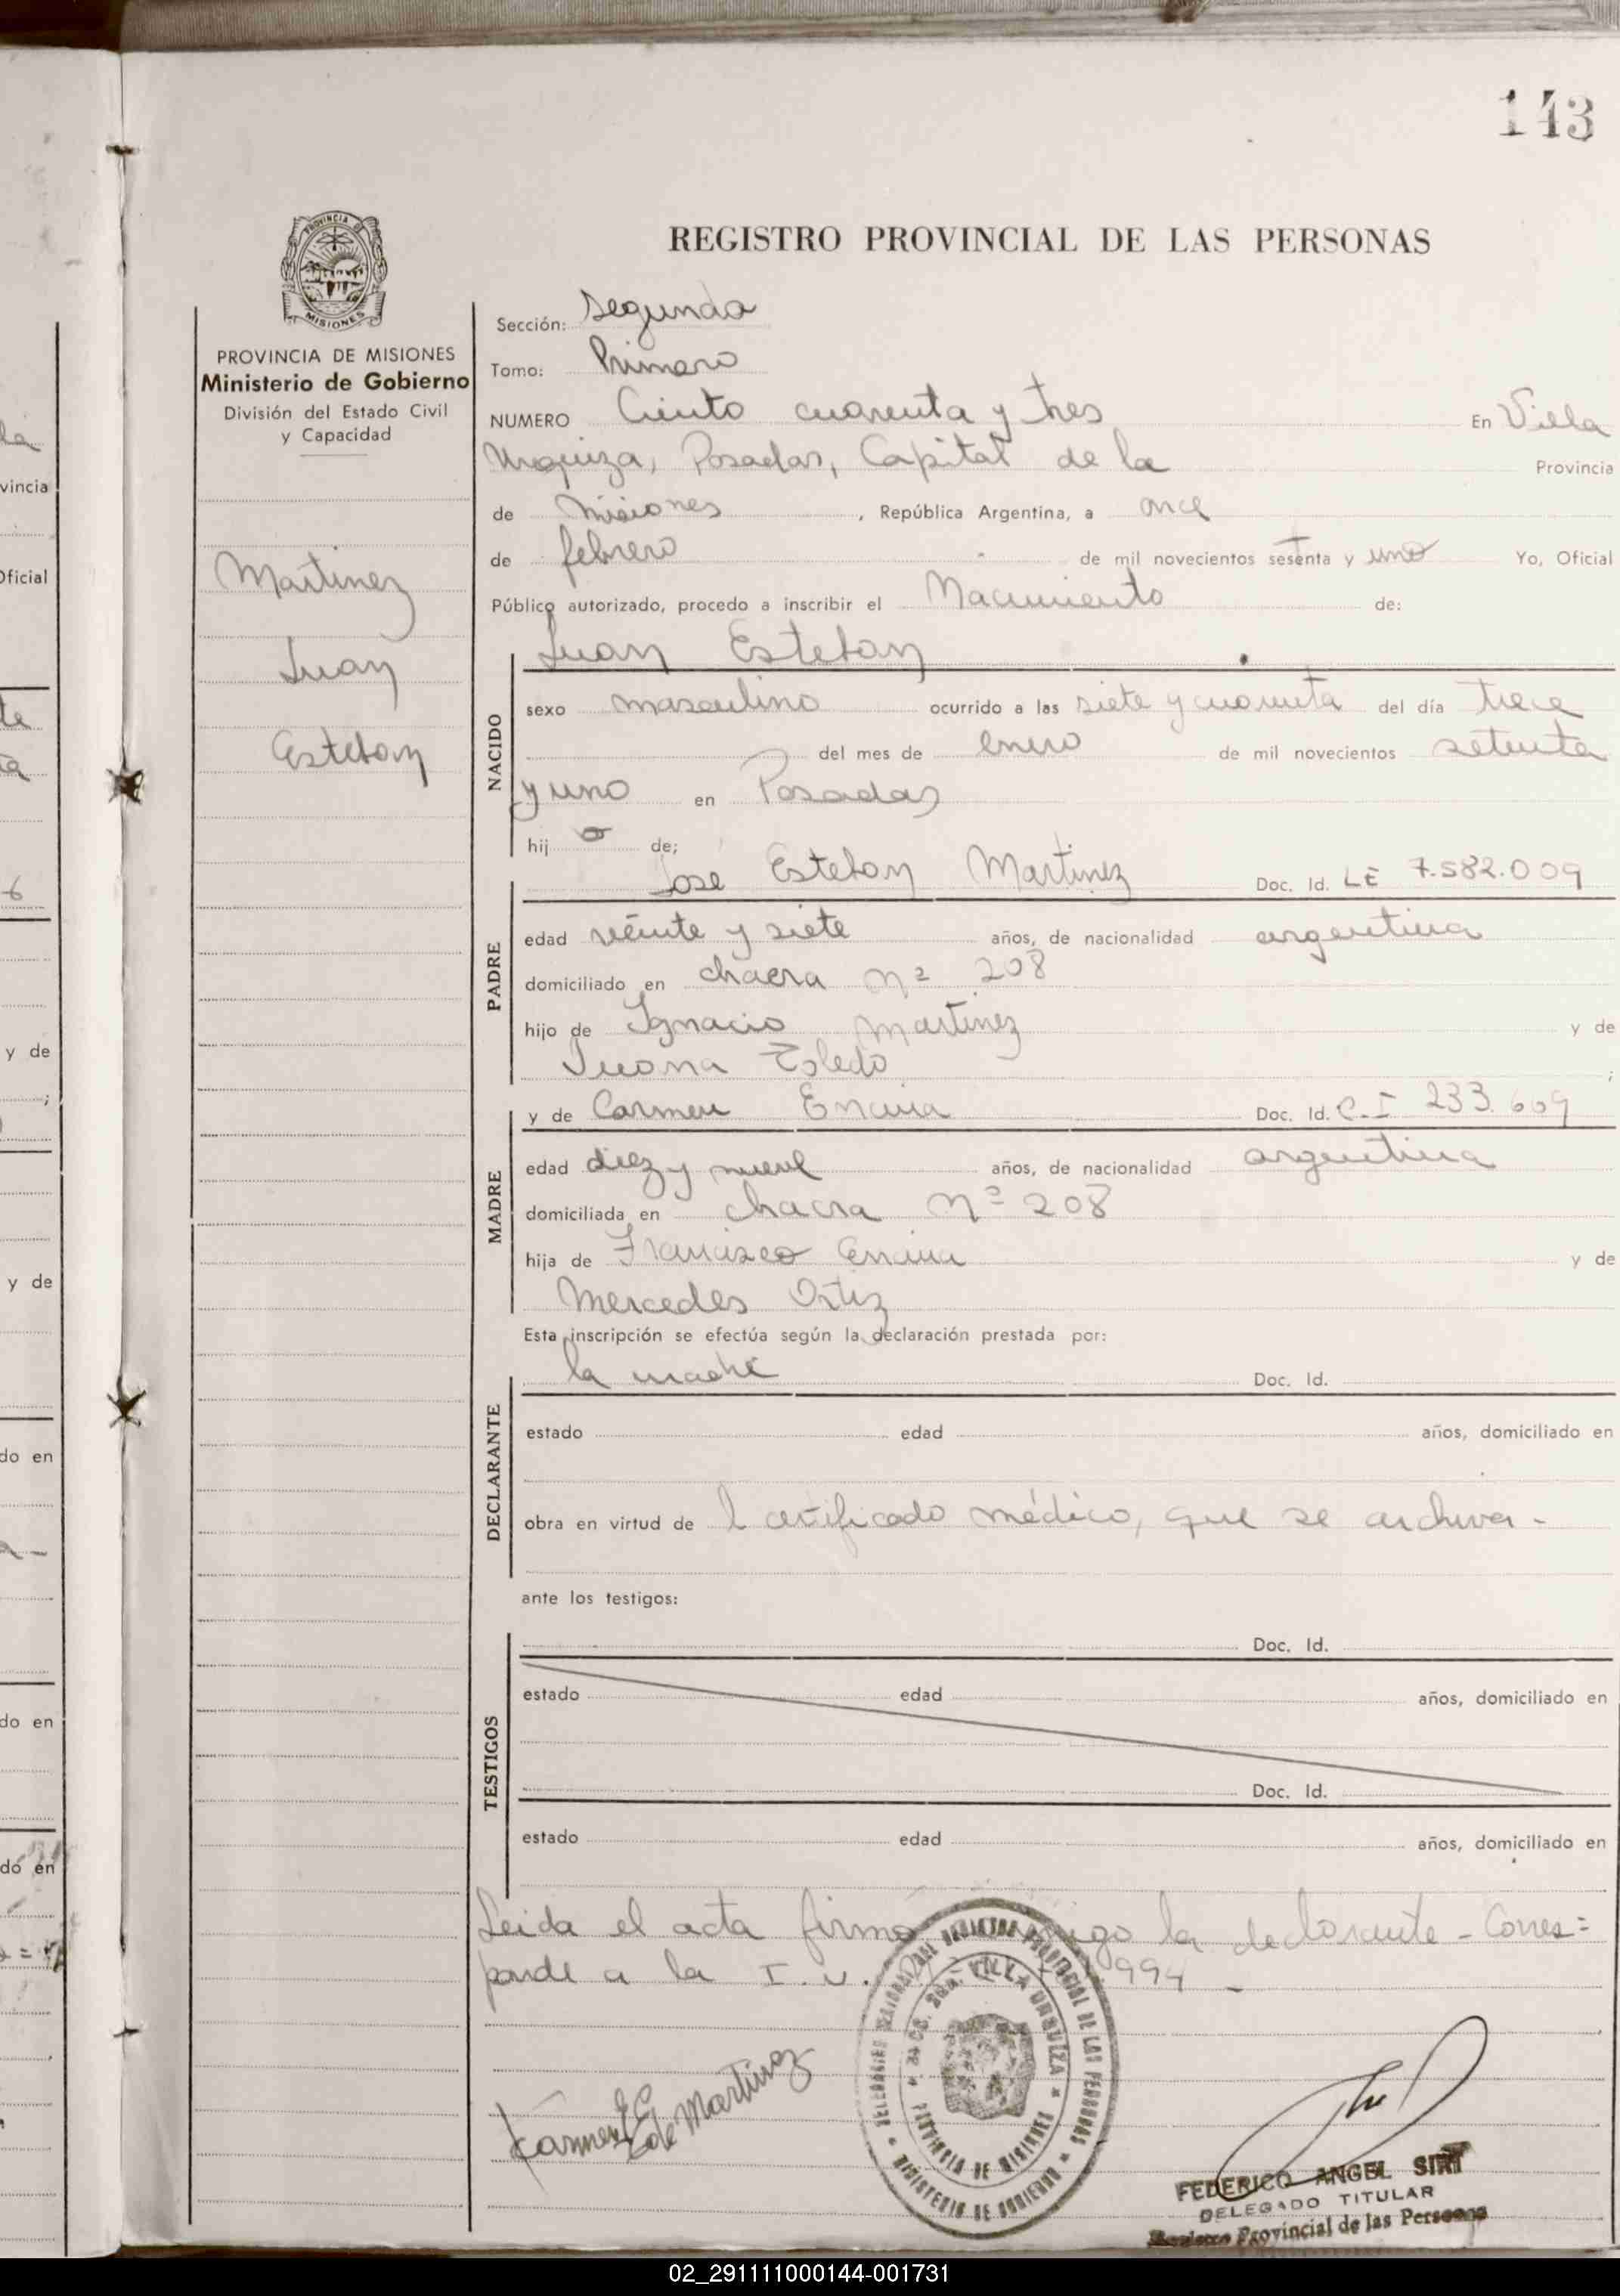 143
REGISTRO PROVINCIAL DE LAS PERSONAS
PROVINCIA DE MISIONES
Ministerio de Gobierno
División del Estado Civil
y Capacidad
Martinez
Juan
Esteban
Sección: Segunda
Tomo: Primero
NUMERO Ciento cuarenta y tres En Villa
Urquiza, Posadas, Capital de la Provincia
de Misiones, República Argentina, a once
de febrero de mil novecientos sesenta y uno Yo, Oficial
Público autorizado, procedo a inscribir el Nacimiento de:
Juan Esteban
NACIDO
sexo masculino ocurrido a las siete y cuarenta del día trece
del mes de enero de mil novecientos setenta
y uno en Posadas
hijo de;
José Esteban Martinez Doc. Id. LE 7.582.009
PADRE
edad veinte y siete años, de nacionalidad argentina
domiciliado en chacra nº 208
hijo de Ignacio Martinez y de
Juana Toledo ;
y de Carmen Encina Doc. Id. C.I 233.609
MADRE
edad diez y nueve años, de nacionalidad argentina
domiciliada en chacra nº 208
hija de Francisco Encina y de
Mercedes Ortiz
Esta inscripción se efectúa según la declaración prestada por:
la madre Doc. Id.
DECLARANTE
estado edad años, domiciliado en
obra en virtud de l certificado médico, que se archiva -
ante los testigos:
Doc. Id.
TESTIGOS
estado edad años, domiciliado en
Doc. Id.
estado edad años, domiciliado en
Leida el acta firma la declarante - Corres=
ponde a la I. U. 994 -
Carmen E de Martinez
DELEGACION REGISTRO PROVINCIAL DE LAS PERSONAS
VILLA URQUIZA
PROVINCIA DE MISIONES
MINISTERIO DE GOBIERNO
FEDERICO ANGEL
DELEGADO TITULAR
Registro Provincial de las Personas
02_291111000144-001731